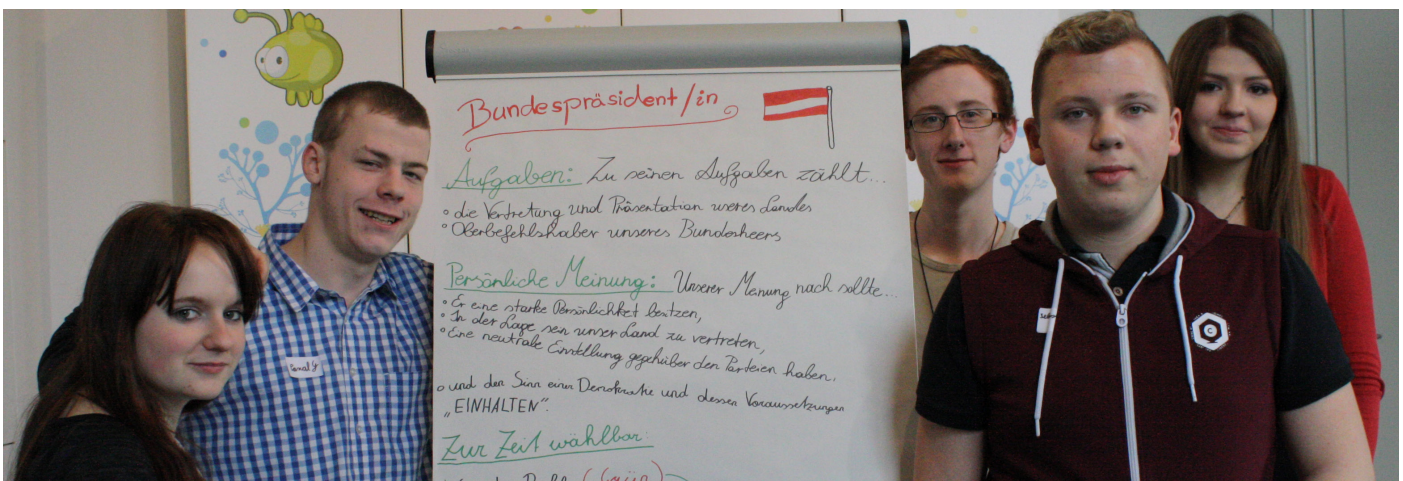 Bundespräsident/in
Aufgaben: Zu seinen Aufgaben zählt...
° die Vertretung und Präsentation unseres Landes
° Oberbefehlshaber unseres Bundesheers
Persönliche Meinung: Unserer Meinung nach sollte...
° Er eine starke Persönlichkeit besitzen,
° In der Lage sein unser Land zu vertreten,
° Eine neutrale Einstellung gegenüber den Parteien haben.
° und den Sinn einer Demokratie und dessen Voraussetzungen
„EINHALTEN".
Zur Zeit wählbar
(Grün)
C